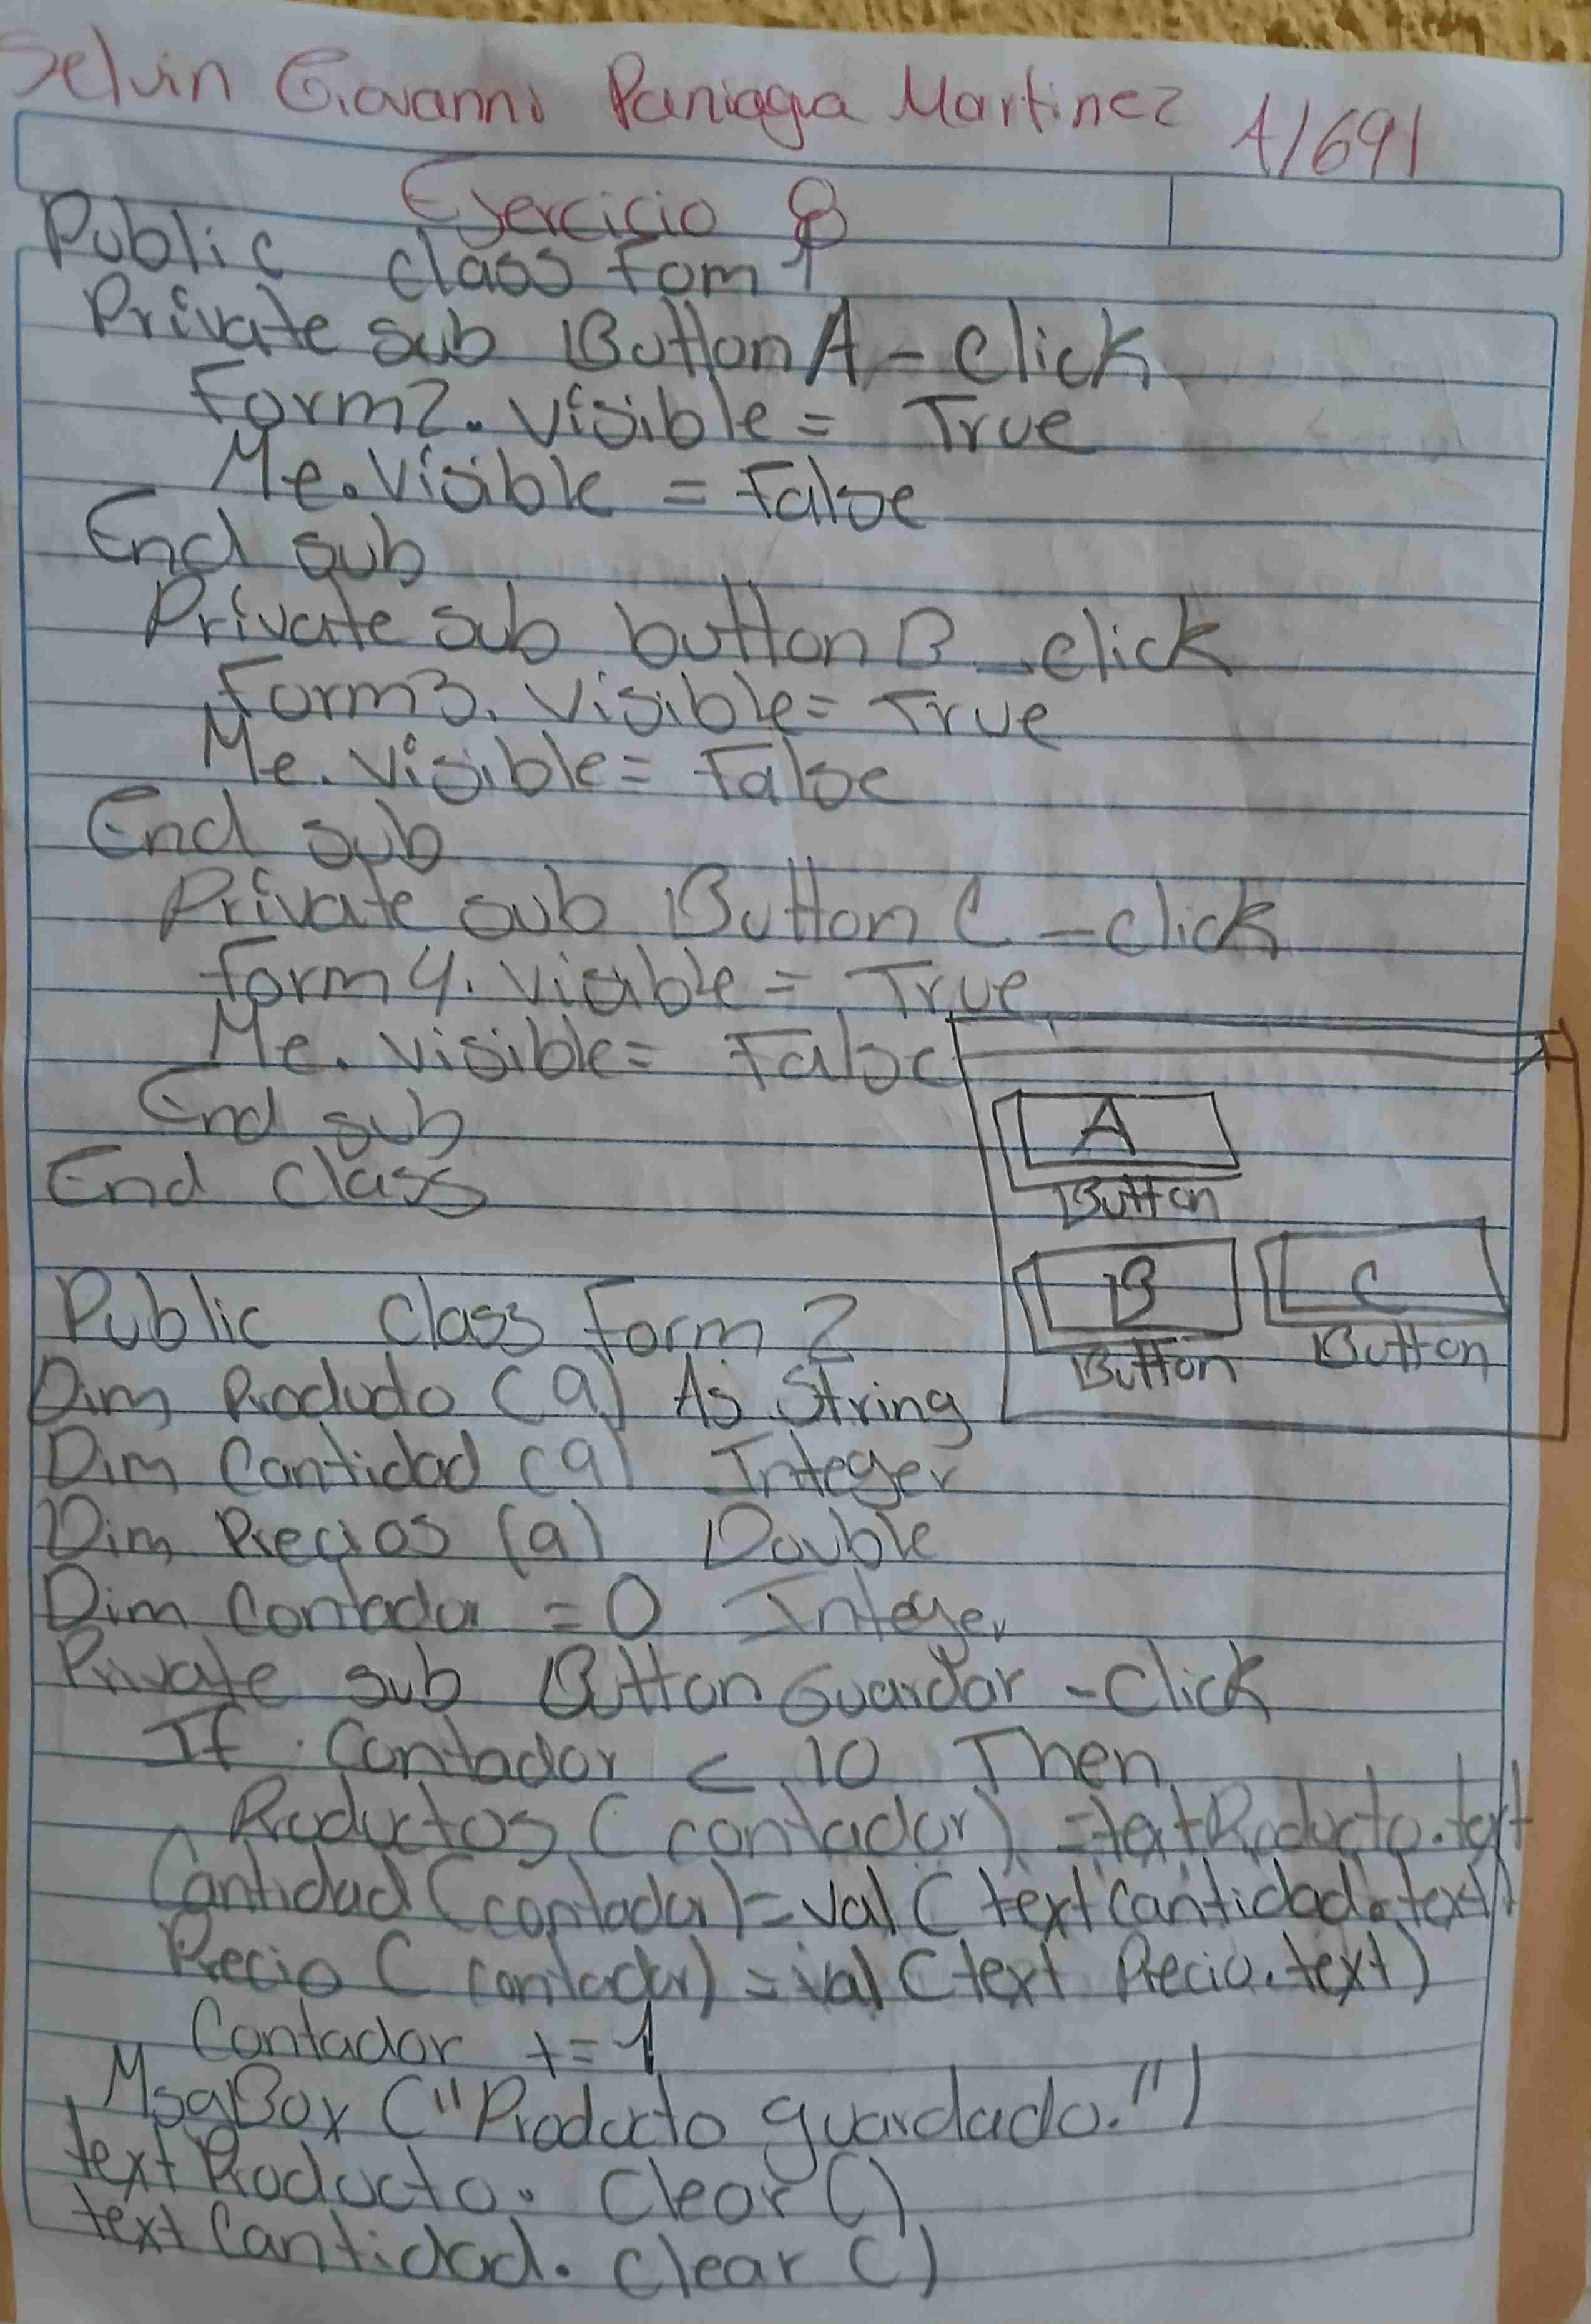 Selvin Giovanni Paniagua Martinez A/691
Ejercicio 8
Public class Fom 1
Private sub Button A - click
Form2. Visible = True
Me. Visible = False
End sub
Private sub button B _ click
Form3. Visible = True
Me. Visible = False
End sub
Private sub Button C - click
form 4. Visible = True
Me. visible = False
End sub
End class
A
Button
B
Button
C
Button
Public class form 2
Dim Producto (9) As String
Dim Cantidad (9) Integer
Dim Precios (9) Double
Dim Contador = 0 Integer
Private sub Button Guardar - Click
If Contador < 10 Then
Productos (contador) = textProducto.text
Cantidad (contador) = val (text cantidad.text)
Precio (contador) = val (text Precio.text)
Contador += 1
MsgBox ("Producto guardado.")
text Producto. Clear ()
text Cantidad. Clear ()